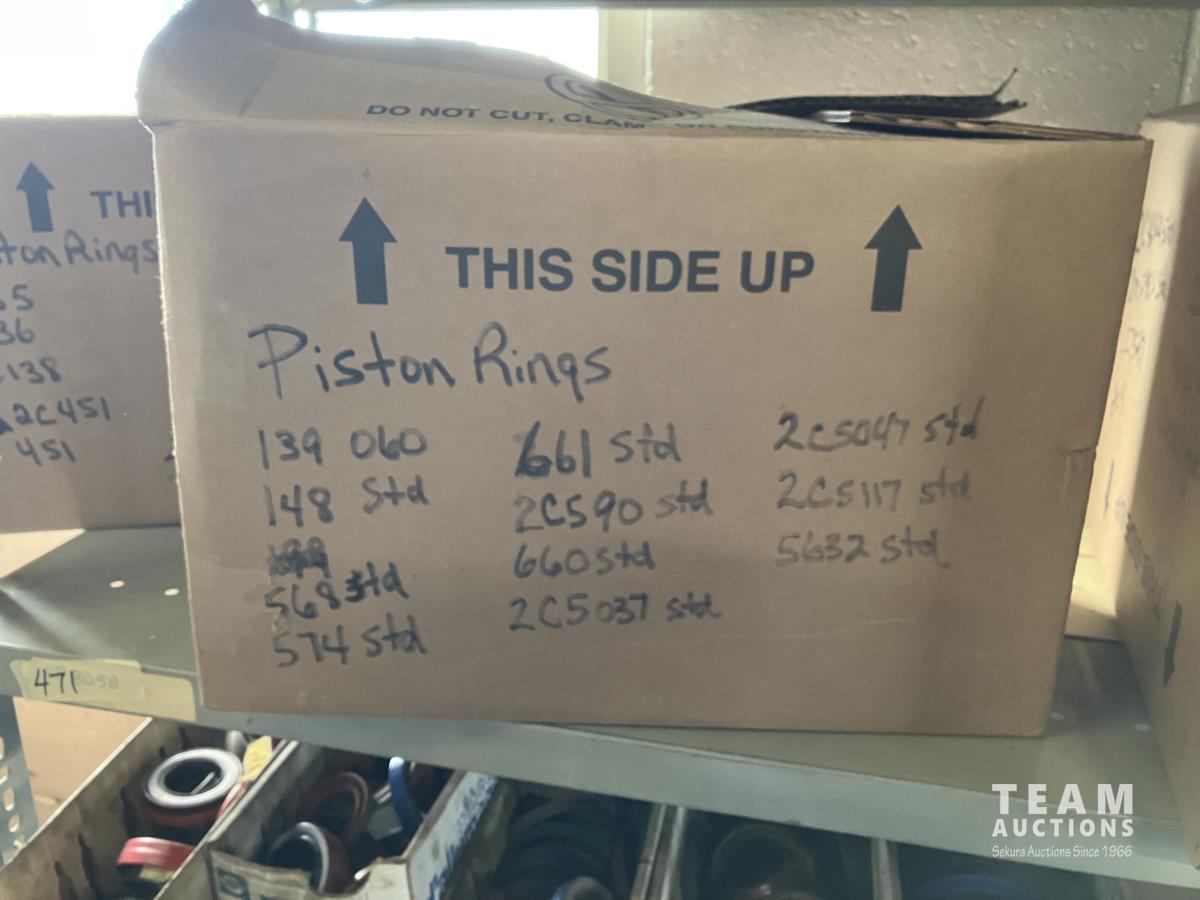 DO NOT CUT, CLAM
THIS SIDE UP
Piston Rings
139 060
148 Std
568 std
574 std
661 std
2C590 std
660 std
2C5037 std
2C5047 std
2C5117 std
5632 std
THI
ton Rings
5
36
138
2C451
451
471
TEAM
AUCTIONS
Sekura Auctions Since 1966